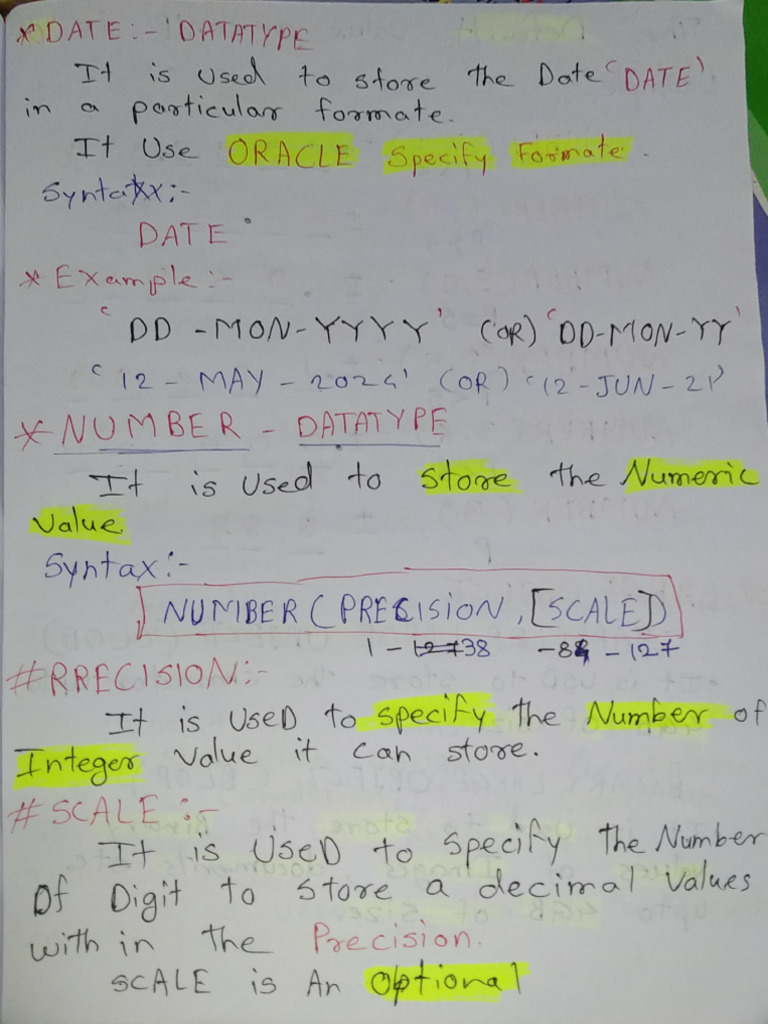 * DATE :- 'DATATYPE
It is used to store the Date 'DATE'
in a particular formate.
It Use ORACLE Specify Formate.
Syntax :-
DATE
* Example :-
'DD-MON-YYYY' (OR) 'DD-MON-YY'
'12-MAY-2024' (OR) '12-JUN-21'
* NUMBER - DATATYPE
It is used to store the Numeric
Value.
Syntax :-
NUMBER (PRECISION, [SCALE])
1 - 127 38 -84 - 127
# RRECISION :-
It is UseD to specify the Number of
Integer Value it can store.
# SCALE :-
It is UseD to specify the Number
Of Digit to store a decimal Values
with in the Precision.
SCALE is An Optional